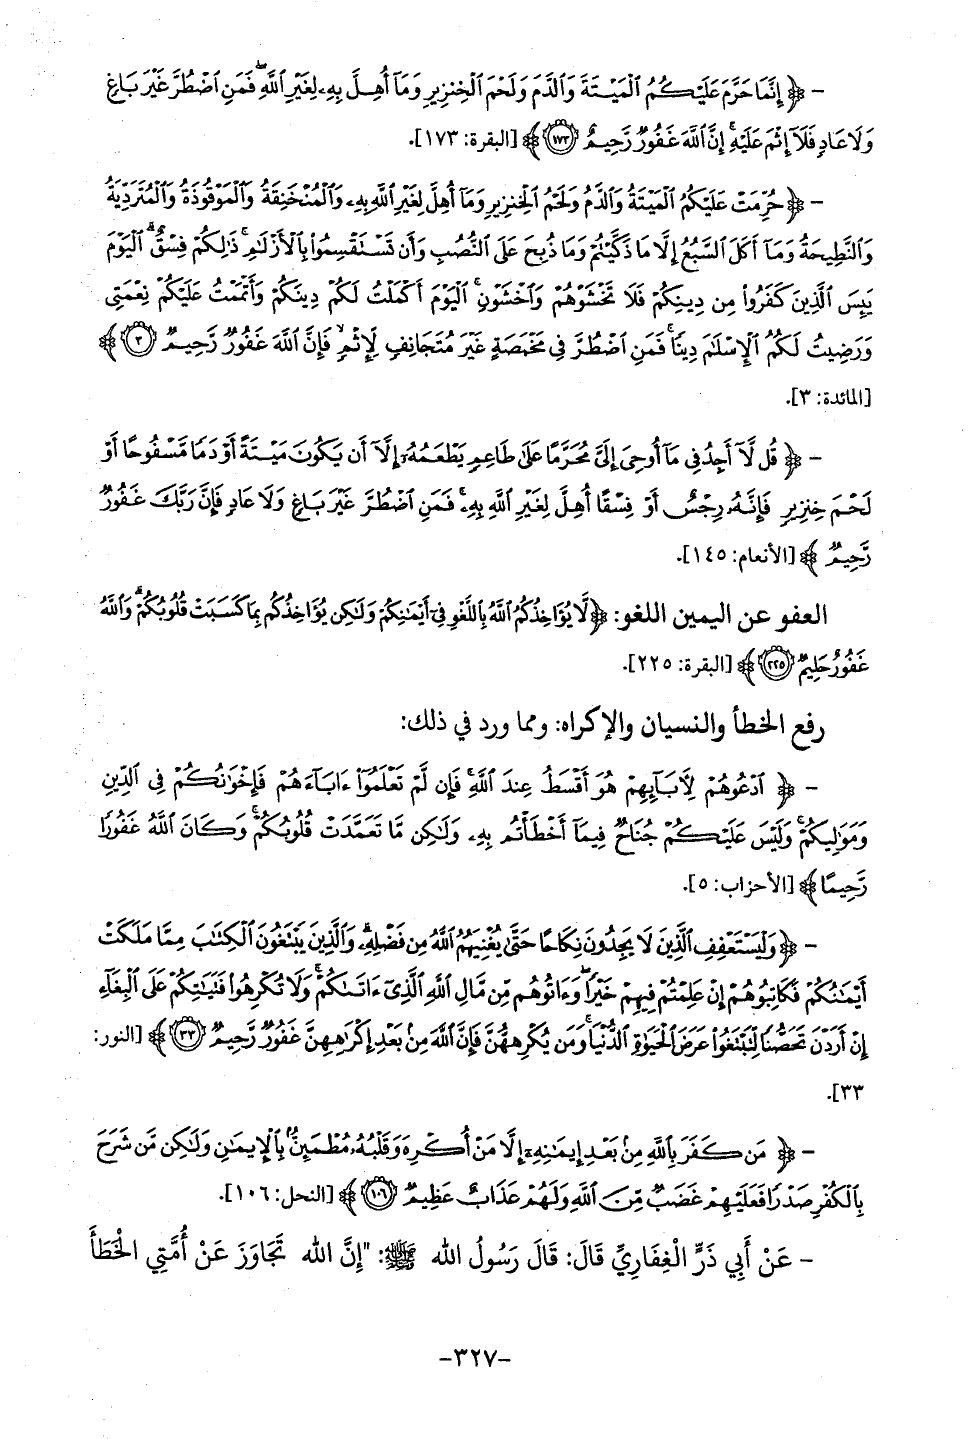 - ﴿ إِنَّمَا حَرَّمَ عَلَيْكُمُ الْمَيْتَةَ وَالدَّمَ وَلَحْمَ الْخِنزِيرِ وَمَا أُهِلَّ بِهِ لِغَيْرِ اللَّهِ فَمَنِ اضْطُرَّ غَيْرَ بَاغٍ
وَلَا عَادٍ فَلَا إِثْمَ عَلَيْهِ إِنَّ اللَّهَ غَفُورٌ رَّحِيمٌ ١٧٣ ﴾ [البقرة: ١٧٣].
- ﴿ حُرِّمَتْ عَلَيْكُمُ الْمَيْتَةُ وَالدَّمُ وَلَحْمُ الْخِنزِيرِ وَمَا أُهِلَّ لِغَيْرِ اللَّهِ بِهِ وَالْمُنْخَنِقَةُ وَالْمَوْقُوذَةُ وَالْمُتَرَدِّيَةُ
وَالنَّطِيحَةُ وَمَا أَكَلَ السَّبُعُ إِلَّا مَا ذَكَّيْتُمْ وَمَا ذُبِحَ عَلَى النُّصُبِ وَأَن تَسْتَقْسِمُوا بِالْأَزْلَٰمِ ذَٰلِكُمْ فِسْقٌ الْيَوْمَ
يَئِسَ الَّذِينَ كَفَرُوا مِن دِينِكُمْ فَلَا تَخْشَوْهُمْ وَاخْشَوْنِ الْيَوْمَ أَكْمَلْتُ لَكُمْ دِينَكُمْ وَأَتْمَمْتُ عَلَيْكُمْ نِعْمَتِي
وَرَضِيتُ لَكُمُ الْإِسْلَٰمَ دِينًا فَمَنِ اضْطُرَّ فِي مَخْمَصَةٍ غَيْرَ مُتَجَانِفٍ لِإِثْمٍ فَإِنَّ اللَّهَ غَفُورٌ رَّحِيمٌ ٣ ﴾
[المائدة: ٣].
- ﴿ قُل لَّا أَجِدُ فِي مَا أُوحِيَ إِلَيَّ مُحَرَّمًا عَلَىٰ طَاعِمٍ يَطْعَمُهُ إِلَّا أَن يَكُونَ مَيْتَةً أَوْ دَمًا مَّسْفُوحًا أَوْ
لَحْمَ خِنزِيرٍ فَإِنَّهُ رِجْسٌ أَوْ فِسْقًا أُهِلَّ لِغَيْرِ اللَّهِ بِهِ فَمَنِ اضْطُرَّ غَيْرَ بَاغٍ وَلَا عَادٍ فَإِنَّ رَبَّكَ غَفُورٌ
رَّحِيمٌ ﴾ [الأنعام: ١٤٥].
العفو عن اليمين اللغو: ﴿ لَّا يُؤَاخِذُكُمُ اللَّهُ بِاللَّغْوِ فِي أَيْمَٰنِكُمْ وَلَٰكِن يُؤَاخِذُكُم بِمَا كَسَبَتْ قُلُوبُكُمْ وَاللَّهُ
غَفُورٌ حَلِيمٌ ٢٢٥ ﴾ [البقرة: ٢٢٥].
رفع الخطأ والنسيان والإكراه: ومما ورد في ذلك:
- ﴿ ادْعُوهُمْ لِآبَائِهِمْ هُوَ أَقْسَطُ عِندَ اللَّهِ فَإِن لَّمْ تَعْلَمُوا ءَابَاءَهُمْ فَإِخْوَٰنُكُمْ فِي الدِّينِ
وَمَوَٰلِيكُمْ وَلَيْسَ عَلَيْكُمْ جُنَاحٌ فِيمَا أَخْطَأْتُم بِهِ وَلَٰكِن مَّا تَعَمَّدَتْ قُلُوبُكُمْ وَكَانَ اللَّهُ غَفُورًا
رَّحِيمًا ﴾ [الأحزاب: ٥].
- ﴿ وَلْيَسْتَعْفِفِ الَّذِينَ لَا يَجِدُونَ نِكَاحًا حَتَّىٰ يُغْنِيَهُمُ اللَّهُ مِن فَضْلِهِ وَالَّذِينَ يَبْتَغُونَ الْكِتَٰبَ مِمَّا مَلَكَتْ
أَيْمَٰنُكُمْ فَكَاتِبُوهُمْ إِنْ عَلِمْتُمْ فِيهِمْ خَيْرًا وَءَاتُوهُم مِّن مَّالِ اللَّهِ الَّذِي ءَاتَىٰكُمْ وَلَا تُكْرِهُوا فَتَيَٰتِكُمْ عَلَى الْبِغَاءِ
إِنْ أَرَدْنَ تَحَصُّنًا لِّتَبْتَغُوا عَرَضَ الْحَيَوٰةِ الدُّنْيَا وَمَن يُكْرِههُّنَّ فَإِنَّ اللَّهَ مِنۢ بَعْدِ إِكْرَٰهِهِنَّ غَفُورٌ رَّحِيمٌ ٣٣ ﴾ [النور:
٣٣].
- ﴿ مَن كَفَرَ بِاللَّهِ مِنۢ بَعْدِ إِيمَٰنِهِ إِلَّا مَنْ أُكْرِهَ وَقَلْبُهُ مُطْمَئِنٌّ بِالْإِيمَٰنِ وَلَٰكِن مَّن شَرَحَ
بِالْكُفْرِ صَدْرًا فَعَلَيْهِمْ غَضَبٌ مِّنَ اللَّهِ وَلَهُمْ عَذَابٌ عَظِيمٌ ١٠٦ ﴾ [النحل: ١٠٦].
- عَنْ أَبِي ذَرٍّ الْغِفَارِيِّ قَالَ: قَالَ رَسُولُ الله ﷺ: "إِنَّ الله تَجَاوَزَ عَنْ أُمَّتِي الْخَطَأَ
-٣٢٧-